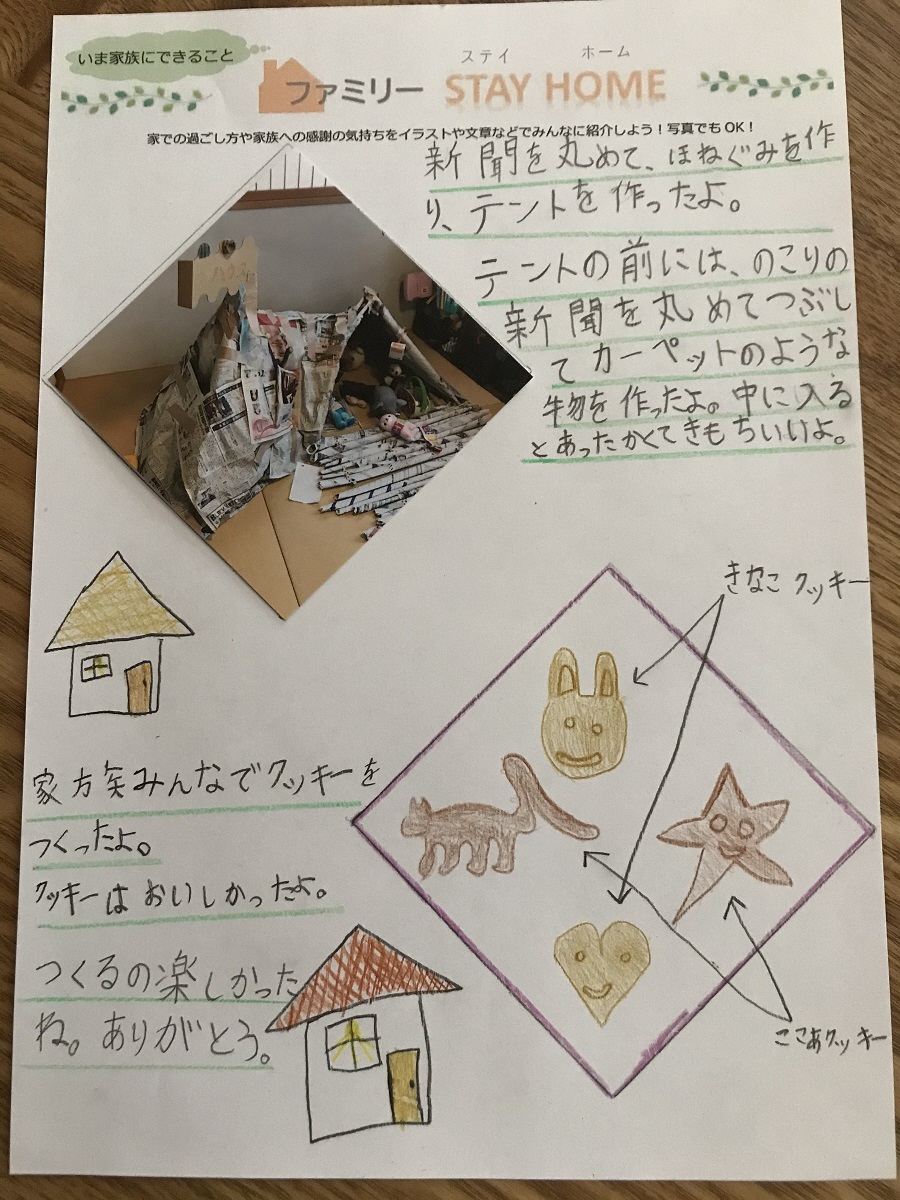 いま家族にできること
ステイ ホーム
ファミリー STAY HOME
家での過ごし方や家族への感謝の気持ちをイラストや文章などでみんなに紹介しよう！写真でもOK！
新聞を丸めて、ほねぐみを作
り、テントを作ったよ。
テントの前には、のこりの
新聞を丸めてつぶし
てカーペットのような
物を作ったよ。中に入る
とあったかくてきもちいいよ。
きなこクッキー
家族みんなでクッキーを
つくったよ。
クッキーはおいしかったよ。
つくるの楽しかった
ね。ありがとう。
ここあクッキー